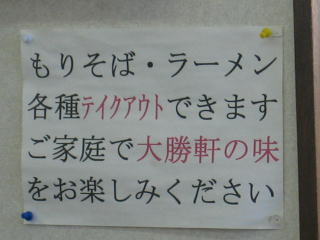 もりそば・ラーメン
各種ﾃｲｸｱｳﾄできます
ご家庭で大勝軒の味
をお楽しみください